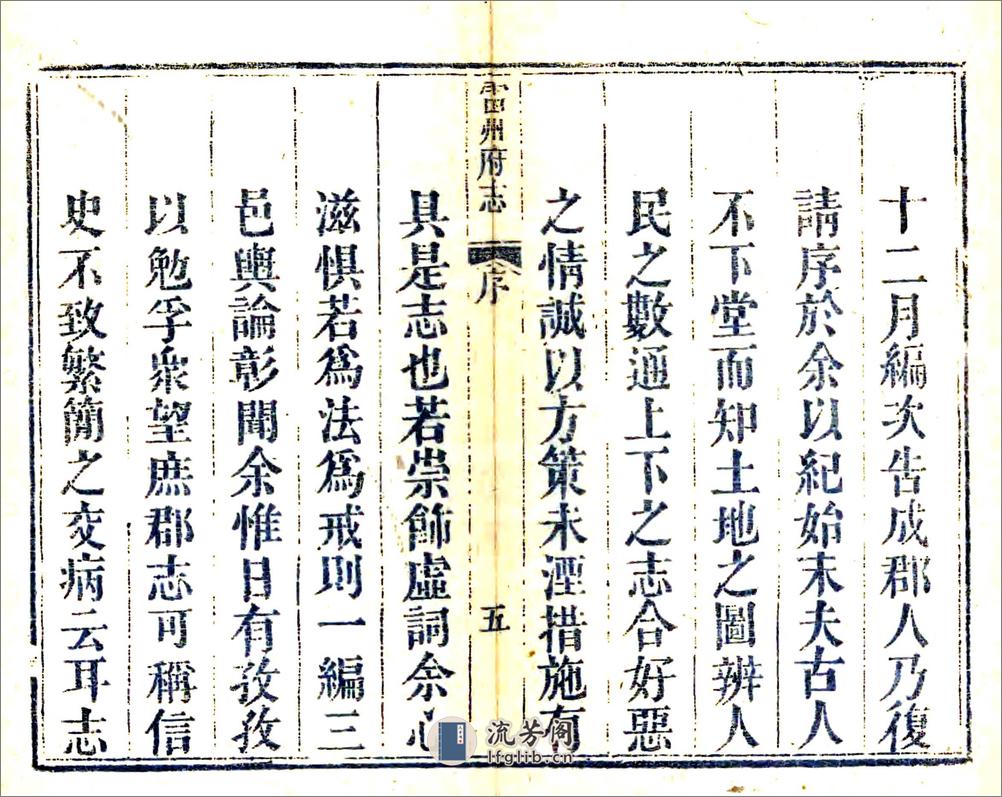 十二月編次告成郡人乃復
請序於余以紀始末夫古人
不下堂而知土地之圖辨人
民之數通上下之志合好惡
之情誠以方策未湮措施有
雷州府志 序 五
具是志也若崇飾虛詞余心
滋惧若為法為戒則一編三
邑輿論彰聞余惟日有孜孜
以勉孚衆望庶郡志可稱信
史不致繁簡之交病云耳志
流芳阁
lfglib.cn